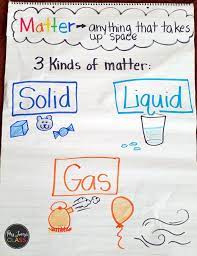 Matter → anything that takes
up space
3 Kinds of matter:
Solid
Liquid
Gas
CLASS